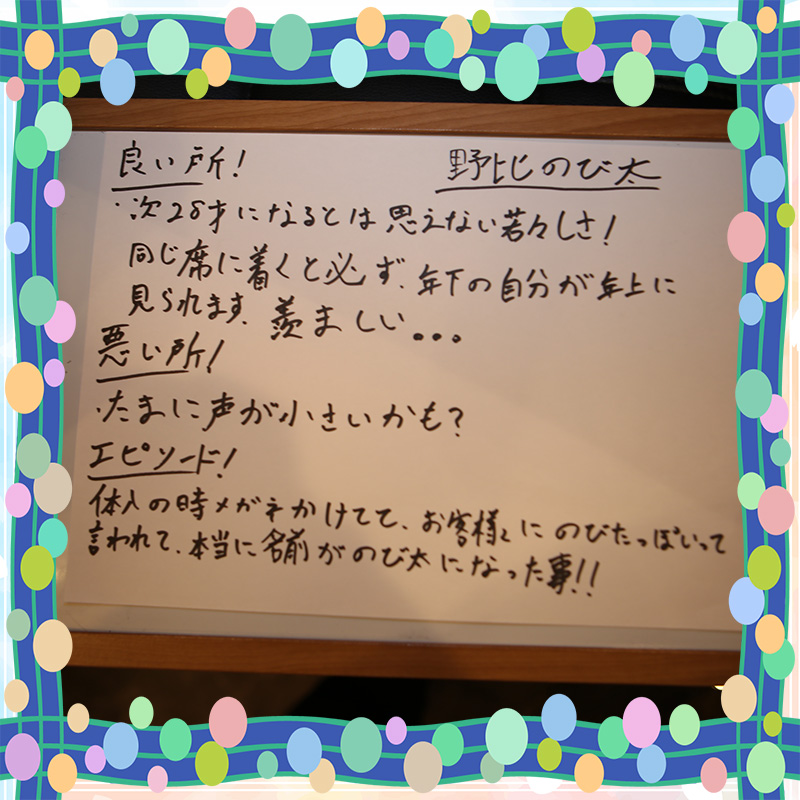 良い所! 野比のび太
・次28才になるとは思えない若々しさ!
同じ席に着くと必ず、年下の自分が年上に
見られます。羨ましい...
悪い所!
・たまに声が小さいかも?
エピソード!
体入の時メガネかけてて、お客様にのびたっぽいって
言われて、本当に名前がのび太になった事!!